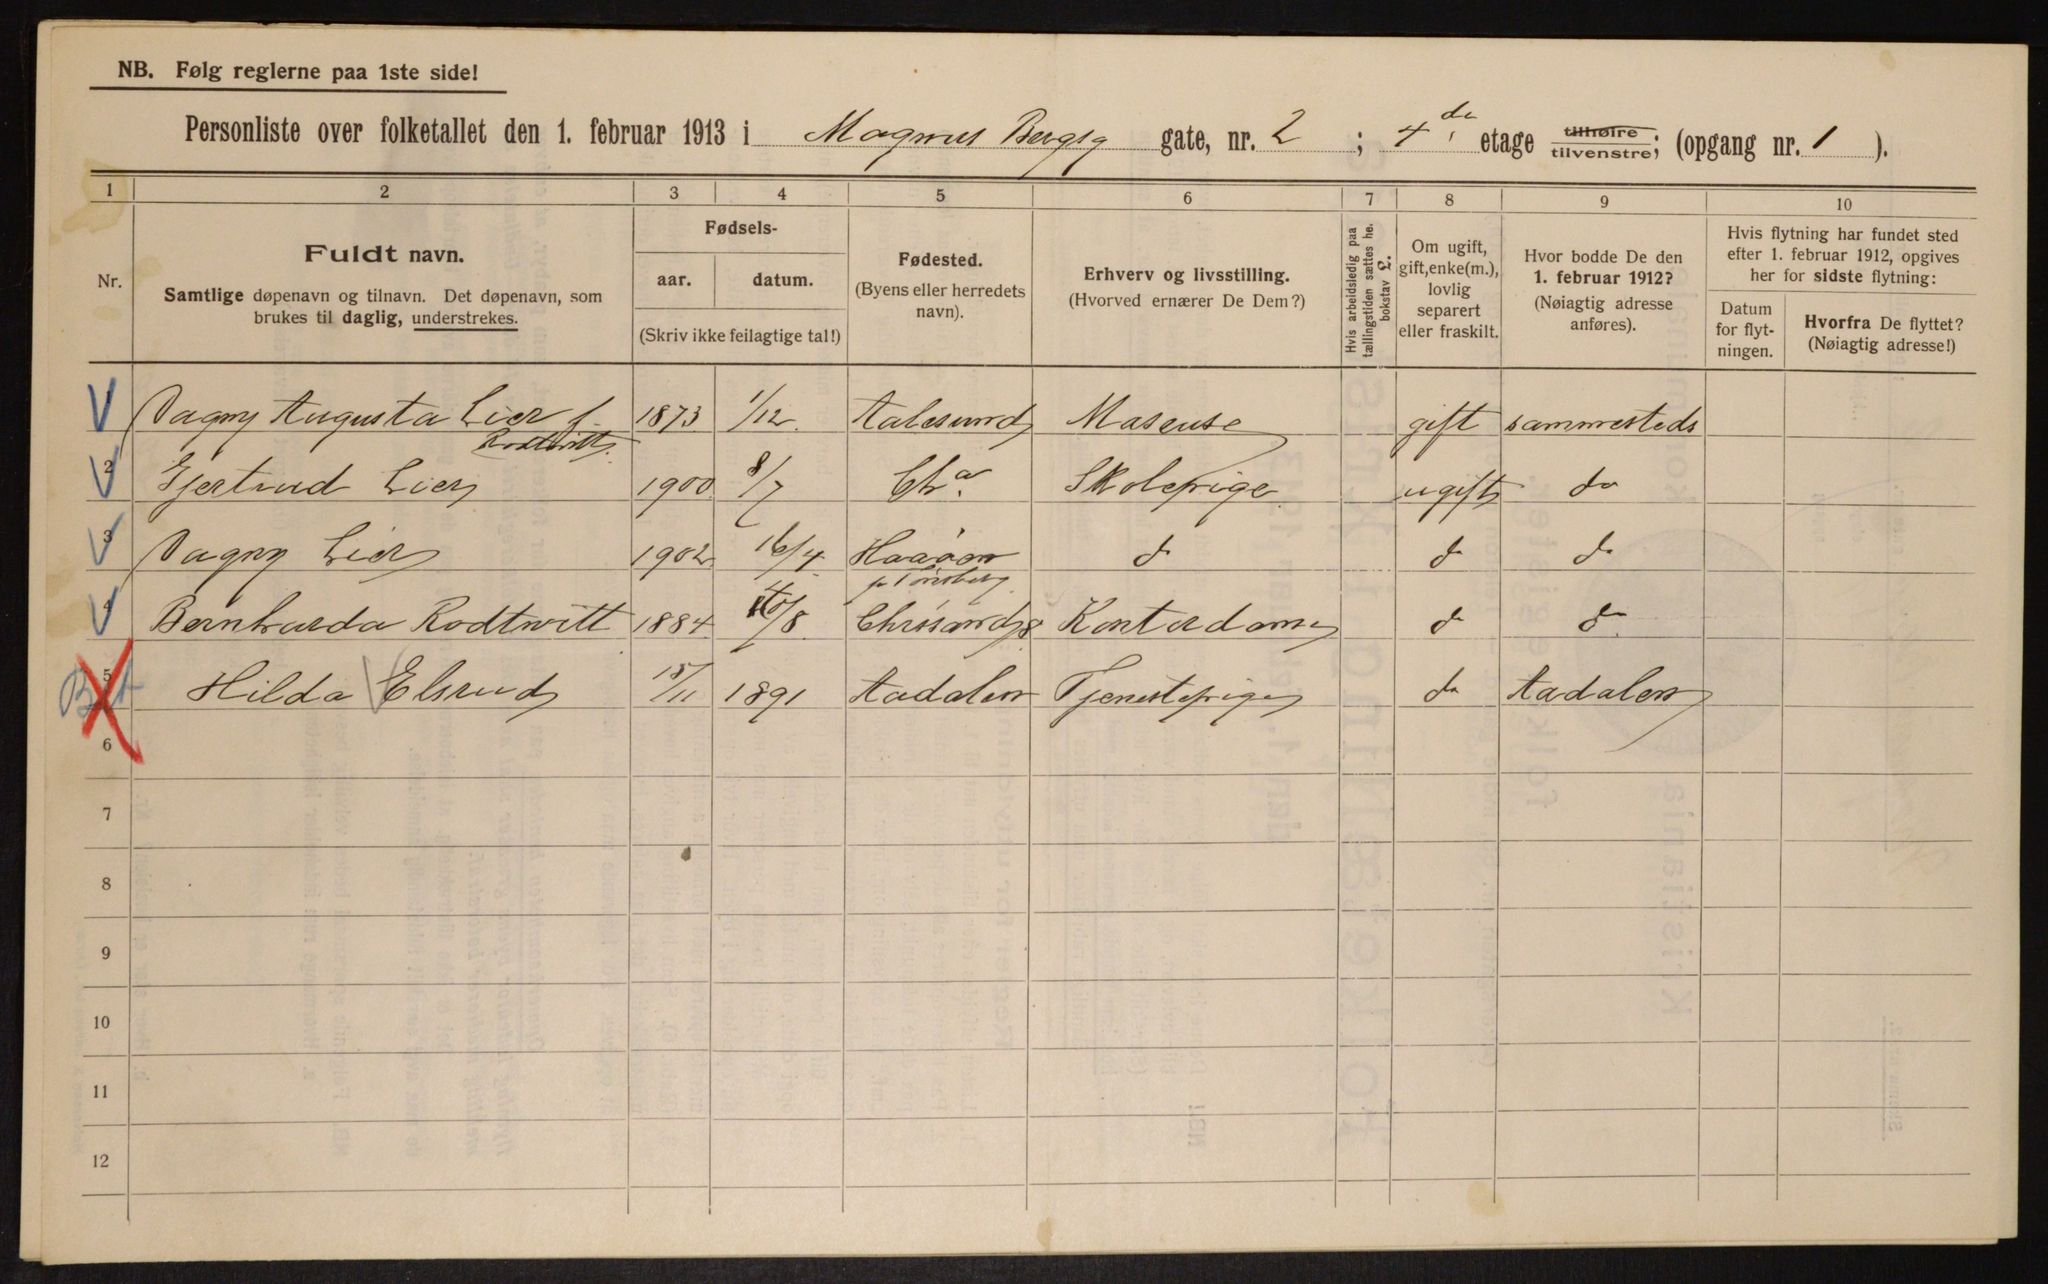 NB. Følg reglerne paa 1ste side!
Personliste over folketallet den 1. februar 1913 i Magnus Bergs gate, nr. 2 ; 4de etage tilhøire tilvenstre; (opgang nr. 1 ).
1 2 3 4 5 6 7 8 9 10
Nr.
Fuldt navn.
Samtlige døpenavn og tilnavn. Det døpenavn, som
brukes til daglig, understrekes.
Fødsels-
aar. datum.
(Skriv ikke feilagtige tal!)
Fødested.
(Byens eller herredets
navn).
Erhverv og livsstilling.
(Hvorved ernærer De Dem?)
Hvis arbeidsledig paa
tællingstiden sættes he.
bokstav L.
Om ugift,
gift, enke(m.),
lovlig
separert
eller fraskilt.
Hvor bodde De den
1. februar 1912?
(Nøiagtig adresse
anføres).
Hvis flytning har fundet sted
efter 1. februar 1912, opgives
her for sidste flytning:
Datum
for flyt-
ningen.
Hvorfra De flyttet?
(Nøiagtig adresse!)
1 Dagny Augusta Lier f. 1873 1/12 Aalesund Maseuse gift sammesteds
Rodtwitt.
2 Gjertrud Lier 1900 8/7 Chra. Skolepige ugift do
3 Dagny Lier 1902 16/4 do do do
pr Tønsberg
4 Bernharda Rodtwitt 1884 10/8 Chrisands Kontordame do do
5 Hilda Elsrud 15/11 1891 Aadalen Tjenestepige do Aadalen
6
7
8
9
10
11
12